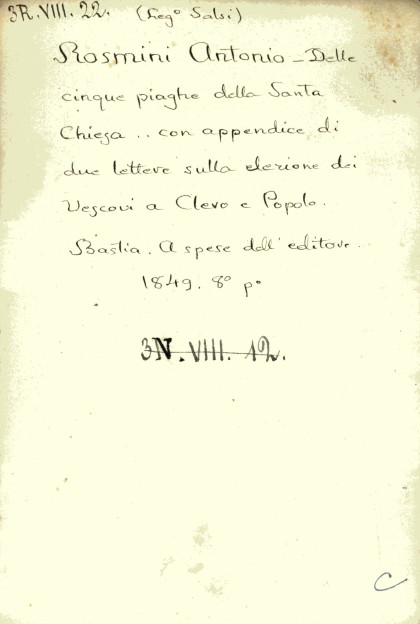 3R. VIII. 22. (Leg° Salsi)
Rosmini Antonio - Delle
cinque piaghe della Santa
Chiesa .. con appendice di
due lettere sulla elezione dei
Vescovi a Clero e Popolo.
Bastia. A spese dell'editore.
1849. 8° p°
3N. VIII. 12.
C